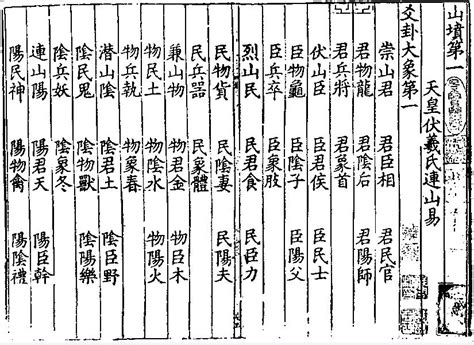 山墳第一
天皇伏羲氏連山易
爻卦大象第一
崇山君　君臣相　君民官
君物龍　君陰后　君陽師
君兵將　君象首
伏山臣　臣君侯　臣民士
臣物龜　臣陰子　臣陽父
臣兵卒　臣象股
烈山民　民君食　民臣力
民物貨　民陰妻　民陽夫
民兵器　民象體
兼山物　物君金　物臣木
物民土　物陰水　物陽火
物兵執　物象春
潜山陰　陰君土　陰臣野
陰民鬼　陰物獸　陰陽樂
陰兵妖　陰象冬
連山陽　陽君天　陽臣幹
陽民神　陽物禽　陽陰禮